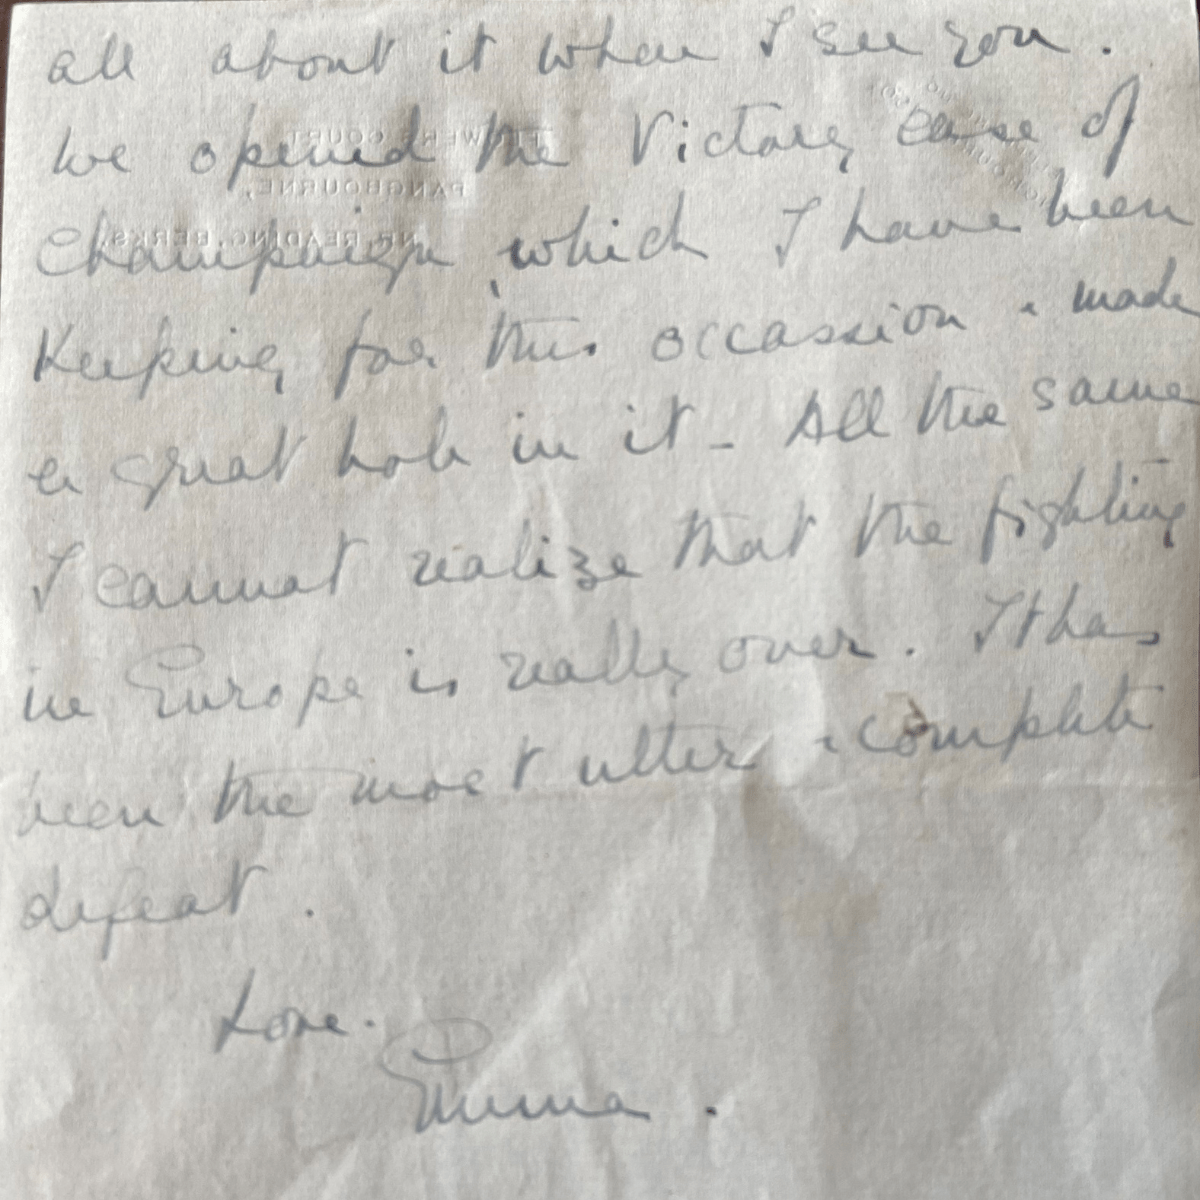 all about it when I see you.
We opened the Victory case of
Champaign which I have been
Keeping for this occassion & made
a great hole in it - All the same
I cannot realize that the fighting
in Europe is really over. It has
been the most utter & complete
defeat.
Love.
Emma.